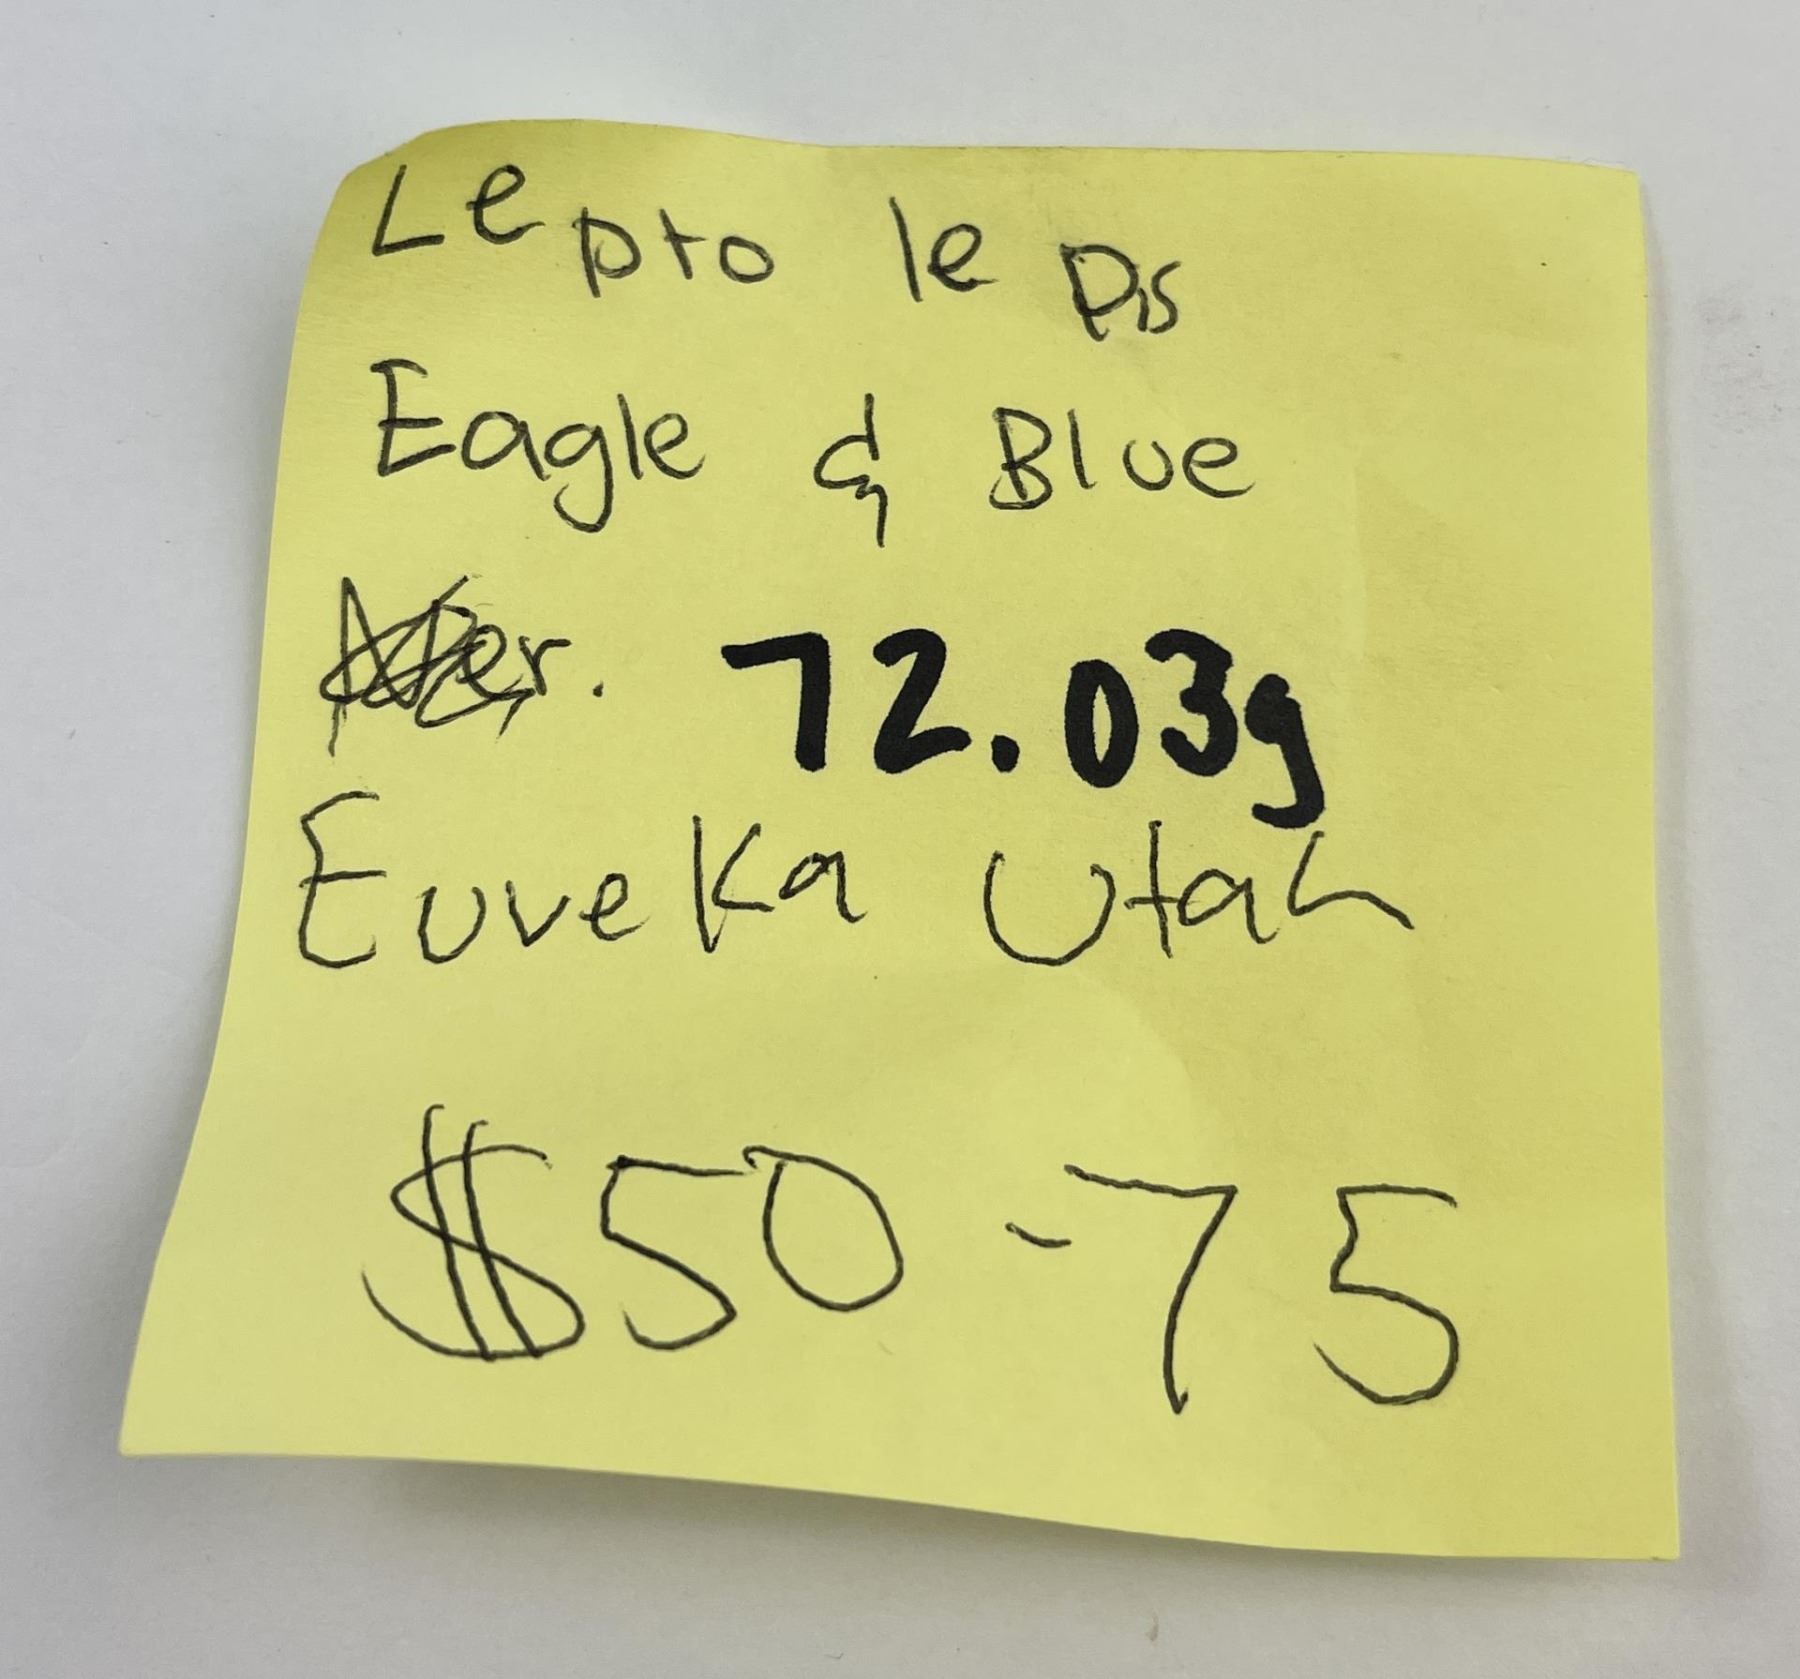 Lepto le pis
Eagle & Blue
72.03g
Eureka Utah
$50-75